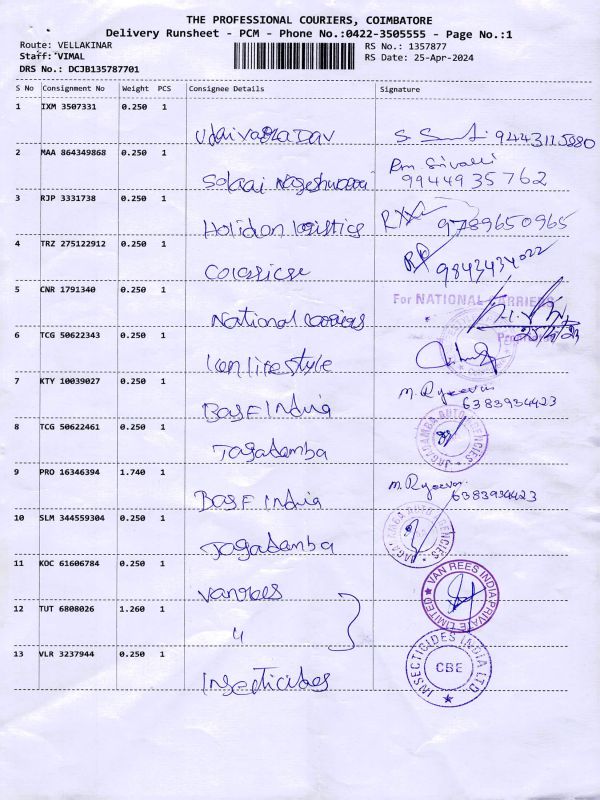 THE PROFESSIONAL COURIERS, COIMBATORE
Delivery Runsheet - PCM - Phone No.:0422-3505555 - Page No.:1
Route: VELLAKINAR
RS No.: 1357877
Staff: VIMAL
RS Date: 25-Apr-2024
DRS No.: DCJB135787701
S No Consignment No Weight PCS Consignee Details Signature
1 IXM 3507331 0.250 1
2 MAA 864349868 0.250 1
9944935762
3 RJP 3331738 0.250 1
Holidon logistics 9789650965
4 TRZ 275122912 0.250 1
9843434022
5 CNR 1791340 0.250 1
For NATIONAL CARRIERS
National carriers
6 TCG 50622343 0.250 1
lifestyle
7 KTY 10039027 0.250 1
BASF India 6383934423
8 TCG 50622461 0.250 1
JAGATAMBA AUTO AGENCIES
Jagadamba
9 PRO 16346394 1.740 1
BASF India 6383934423
10 SLM 344559304 0.250 1
Jagadamba
11 KOC 61606784 0.250 1
Vanrees
VAN REES INDIA PRIVATE LIMITED
12 TUT 6808026 1.260 1
"
13 VLR 3237944 0.250 1
INSECTICIDES INDIA LTD.
CBE
Insecticides